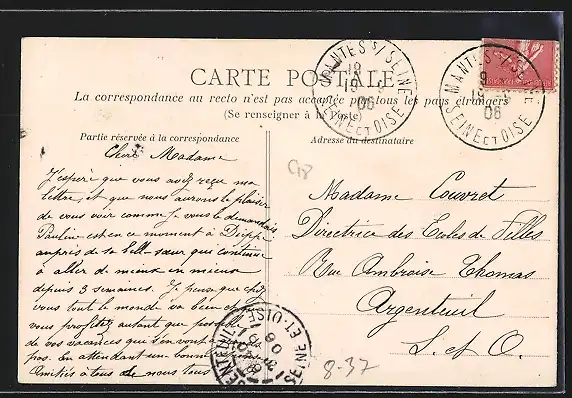 CARTE POSTALE
La correspondance au recto n'est pas acceptée par tous les pays étrangers
(Se renseigner à la Poste)
Partie réservée à la correspondance
Adresse du destinataire
MANTES S/ SEINE
19
06
SEINE ET OISE
MANTES S/ SEINE
9
06
SEINE ET OISE
Chère Madame
J'espère que vous avez reçu ma
lettre, et que nous aurons le plaisir
de vous voir comme je vous le demandais
Pauline est en ce moment à Dieppe
auprès de sa belle-sœur qui continue
à aller de mieux en mieux
depuis 3 semaines. Je pense que chez
vous tout le monde va bien et que
vous profitez autant que possible
de vos vacances qui s'en vont
pas. En attendant un bonne
Amitiés à tous de nous tous
Madame Couvret
Directrice des Ecoles de Filles
Rue Ambroise Thomas
Argenteuil
S. et O.
ARGENTEUIL
SEINE-ET-OISE
8-37